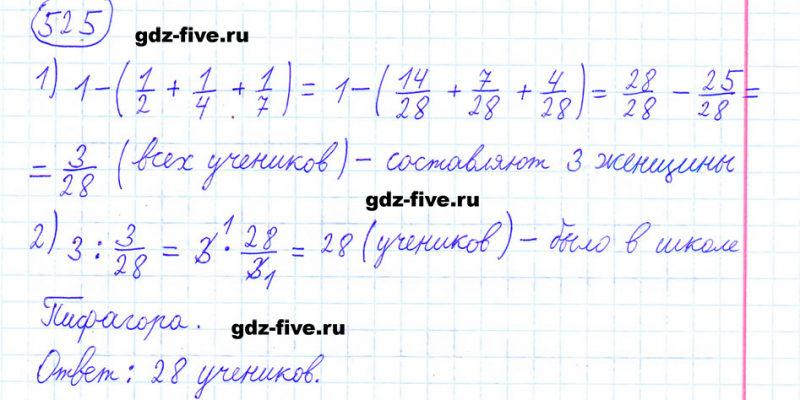 525
gdz-five.ru
1) 1 - (1/2 + 1/4 + 1/7) = 1 - (14/28 + 7/28 + 4/28) = 28/28 - 25/28 =
= 3/28 (всех учеников) - составляют 3 женщины
gdz-five.ru
2) 3 : 3/28 = 3¹ · 28/3₁ = 28 (учеников) - было в школе
Пифагора.
gdz-five.ru
Ответ: 28 учеников.